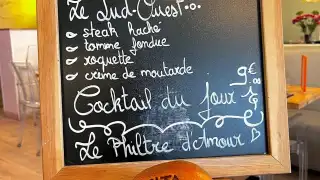 Le Sud-Ouest...
steak haché
tomme fondue
roquette
crème de moutarde
Cocktail du jour 9€
Le Philtre d'Amour